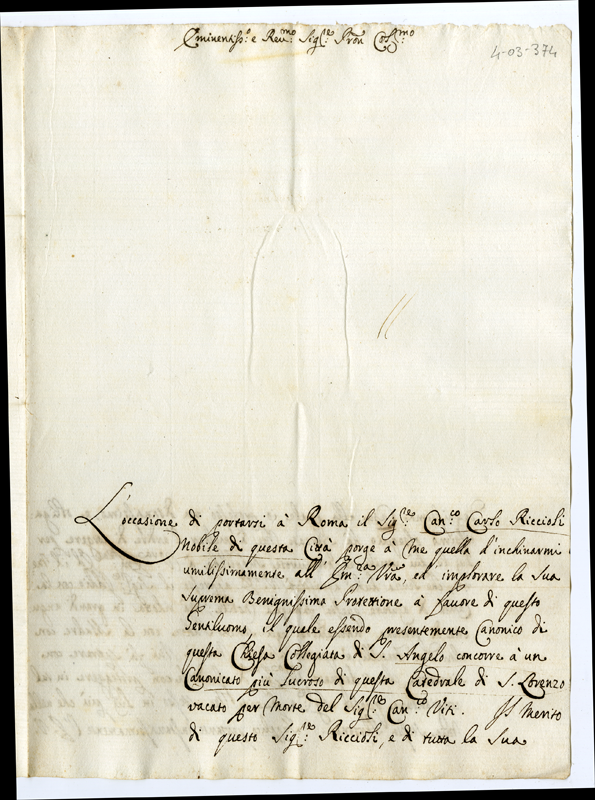 Eminentiss.º e Rev.mo Sig.re Pron Col.mo
4-03-374
L'occasione di portarsi à Roma il Sig.re Can.co Carlo Riccioli
Nobile di questa Città porge à me quella d'inchinarmi
umilissimamente all' Em.za Vra, ed implorare la Sua
Suprema Benignissima Protettione à favore di questo
Gentiluomo, il quale essendo presentemente Canonico di
questa Chiesa Collegiata di S. Angelo concorre à un
Canonicato più lucroso di questa Catedrale di S. Lorenzo
vacato per Morte del Sig.re Can.co Viti. Il Merito
di questo Sig.re Riccioli, e di tutta la Sua